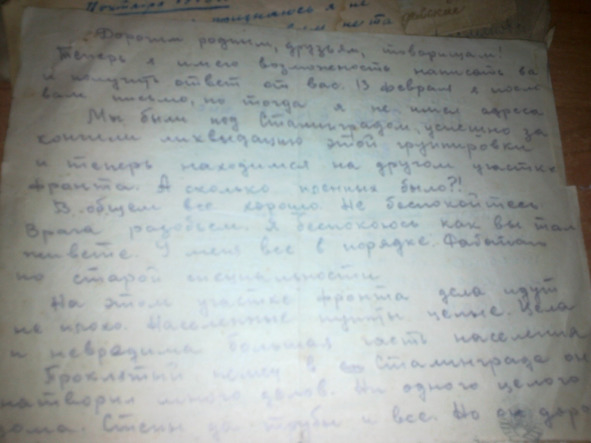 Дорогим родным, друзьям, товарищам!
Теперь я имею возможность написать ва
и получить ответ от вас. 13 февраля я посл
вам письмо, но тогда я не имел адреса
Мы были под Сталинградом, успешно за
кончили ликвидацию этой группировки
и теперь находимся на другом участке
фронта. А сколько пленных было?!
В общем все хорошо. Не беспокойтесь.
Врага разобьем. Я беспокоюсь как вы там
живете. У меня все в порядке. Работаю
по старой специальности
На этом участке фронта дела идут
не плохо. Населенные пункты целые. Цела
и невредима большая часть населения
Проклятый немец в Сталинграде он
натворил много делов. Ни одного целого
дома. Стены да трубы и все. Но он доро